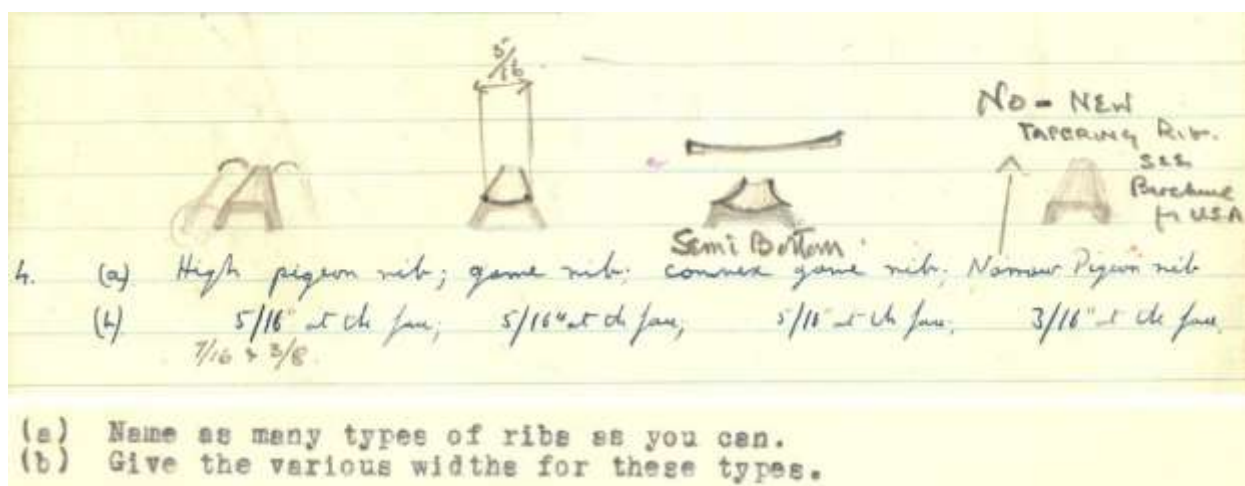 5/16
NO - NEW
TAPERING RIB.
SEE
Brochure
for USA
Semi Bottom
4. (a) High pigeon rib; game rib; convex game rib; Narrow Pigeon rib
(b) 5/16" at the face; 5/16" at the face; 5/16" at the face; 3/16" at the face.
7/16 & 3/8
(a) Name as many types of ribs as you can.
(b) Give the various widths for these types.